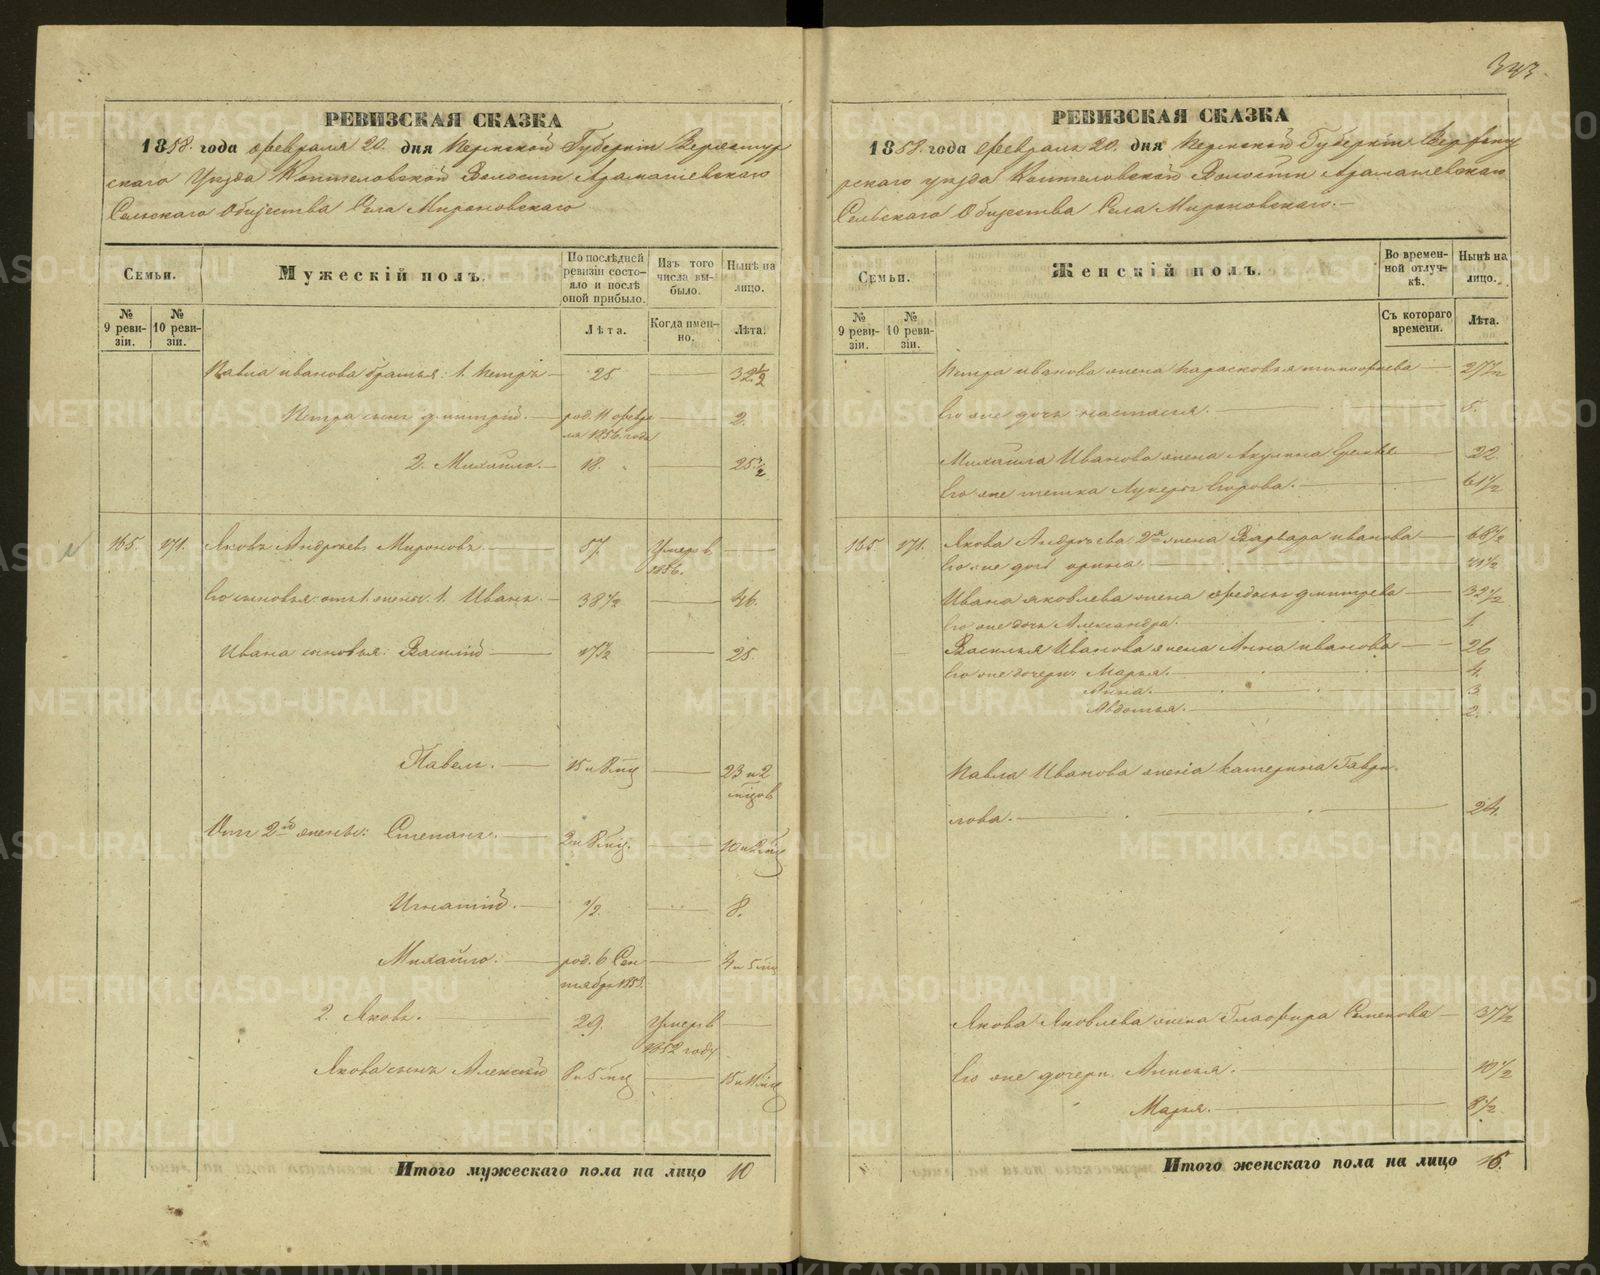 343.
РЕВИЗСКАЯ СКАЗКА
1858. года февраля 20. дня Пермской Губерніи Верхотур
скаго Уезда Коптеловской Волости Арамашевскаго
Сельскаго Общества Села Мироновскаго
Семьи.
Мужескій полъ.
По послѣдней ревизіи состояло и послѣ оной прибыло.
Изъ того числа выбыло.
Нынѣ на лицо.
№ 9 ревизіи.
№ 10 ревизіи.
Лѣта.
Когда именно.
Лѣта.
Павла иванова братья: 1. Петръ — 25 — 32 1/2
Петра сынъ дмитрій. — род. 11 февраля 1856. года — 2.
2. Михайло. — 18. — 25 1/2
165. 171. Яковъ Андреевъ Мироновъ — 57. Умеръ в 1856. —
Его сыновья: отъ 1. жены: 1. Иванъ. — 38 1/2 — 46.
Ивана сыновья: Василій — 17 1/2 — 25.
Павелъ. — 15 и 8 мц — 23 и 2 мцов
Отъ 2й жены: Степанъ. — 2 и 8 мц. — 10 и 2 мц
Игнатій. — 1/2. — 8.
Михайло. — род. 6 Сентября 1853. — 4 и 5 мц
2. Яковъ. — 29. Умеръ в 1852 году —
Якова сынъ Алексѣй 8 и 5 мц — 15 и 11 мц
Итого мужескаго пола на лицо 10
РЕВИЗСКАЯ СКАЗКА
1858. года февраля 20. дня Пермской Губерніи Верхоту
рскаго уезда Коптеловской Волости Арамашевскаго
Сельскаго Общества Села Мироновскаго. —
Семьи.
Женскій полъ.
Во временной отлучкѣ.
Нынѣ на лицо.
№ 9 ревизіи.
№ 10 ревизіи.
Съ котораго времени.
Лѣта.
Петра иванова жена Парасковья тимофиева — 27 1/2
Его же дочь настасья. 5.
Михайла Иванова жена Акулина — 22.
Его же тетка Лукерья Егорова. — 61 1/2
165. 171. Якова Андреева 2я жена Варвара иванова — 68 1/2
Его же дочь орина. — 21 1/2
Ивана яковлева жена федосья дмитриева — 32 1/2
Его же дочь Александра. — 1.
Василья Иванова жена Анна иванова — 26
Его же дочери: Марья. — 4.
Анна. — 3.
Авдотья. — 2.
Павла Иванова жена катерина Гаври
лова. — 24.
Якова Яковлева жена Глафира Семенова — 37 1/2
Его же дочери Анисья. — 10 1/2
Марья. — 8 1/2
Итого женскаго пола на лицо 16.
METRIKI.GASO-URAL.RU